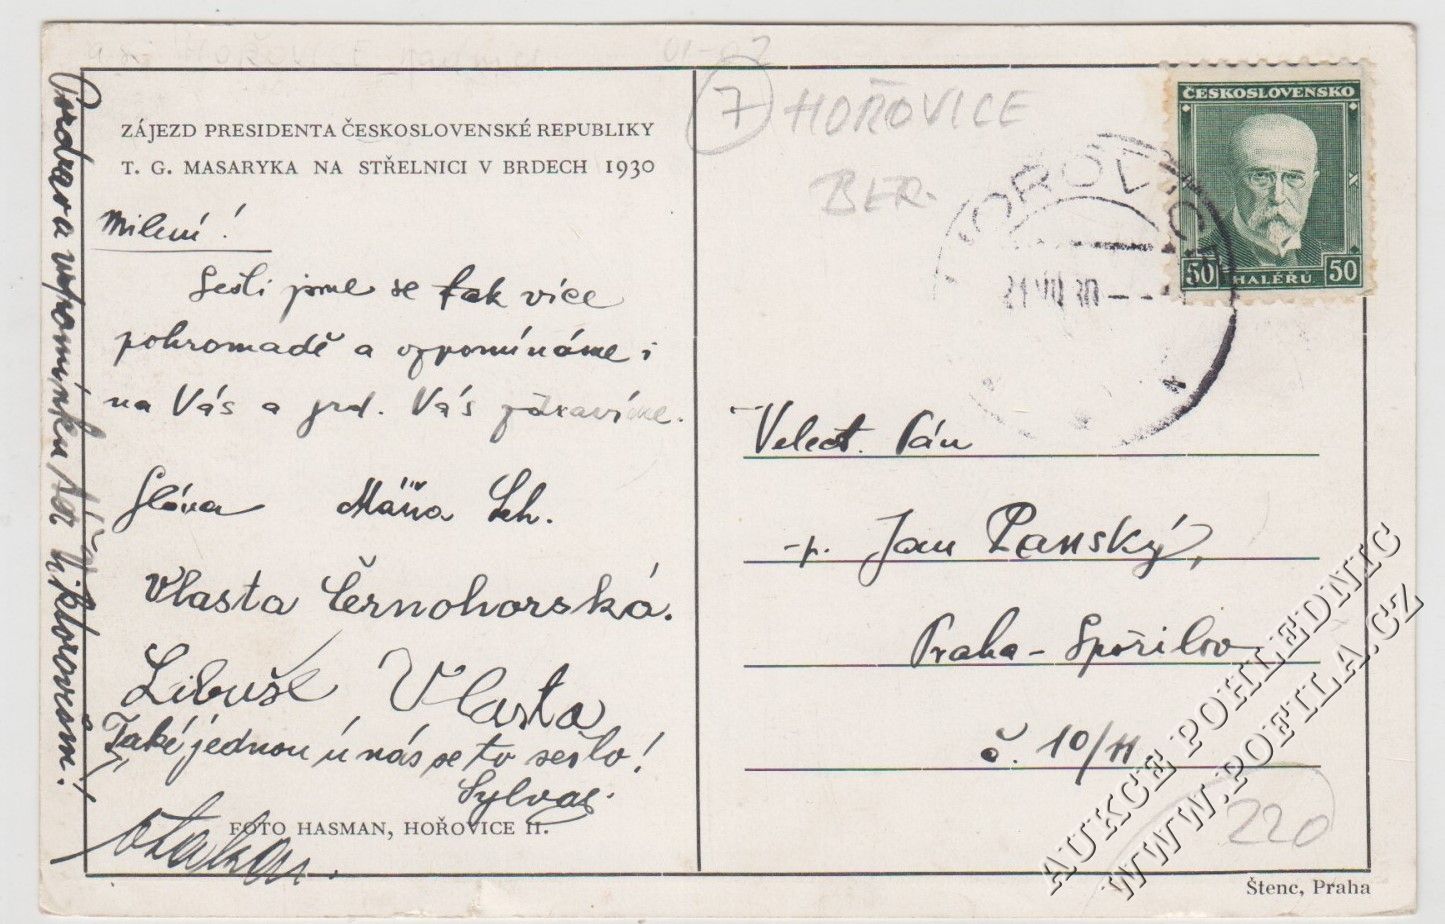 HOŘOVICE
01-02
ZÁJEZD PRESIDENTA ČESKOSLOVENSKÉ REPUBLIKY
T. G. MASARYKA NA STŘELNICI V BRDECH 1930
Milení!
Sešli jsme se tak více
pohromadě a vzpomínáme i
na Vás a srd. Vás zdravíme.
Sláva Máňa Sch.
Vlasta Černohorská.
Libuše Vlasta
Také jednou u nás se to sešlo!
Sylva
Otakar.
FOTO HASMAN, HOŘOVICE II.
Pozdrav a vzpomínku
7 HOŘOVICE
BER.
HOROVICE
21 VII 30
ČESKOSLOVENSKO
50 HALÉŘŮ 50
Velect. Pán
p. Jan Panský,
Praha - Spořilov
č. 10/11
220
Štenc, Praha
AUKCE POHLEDNIC
WWW.POFILA.CZ